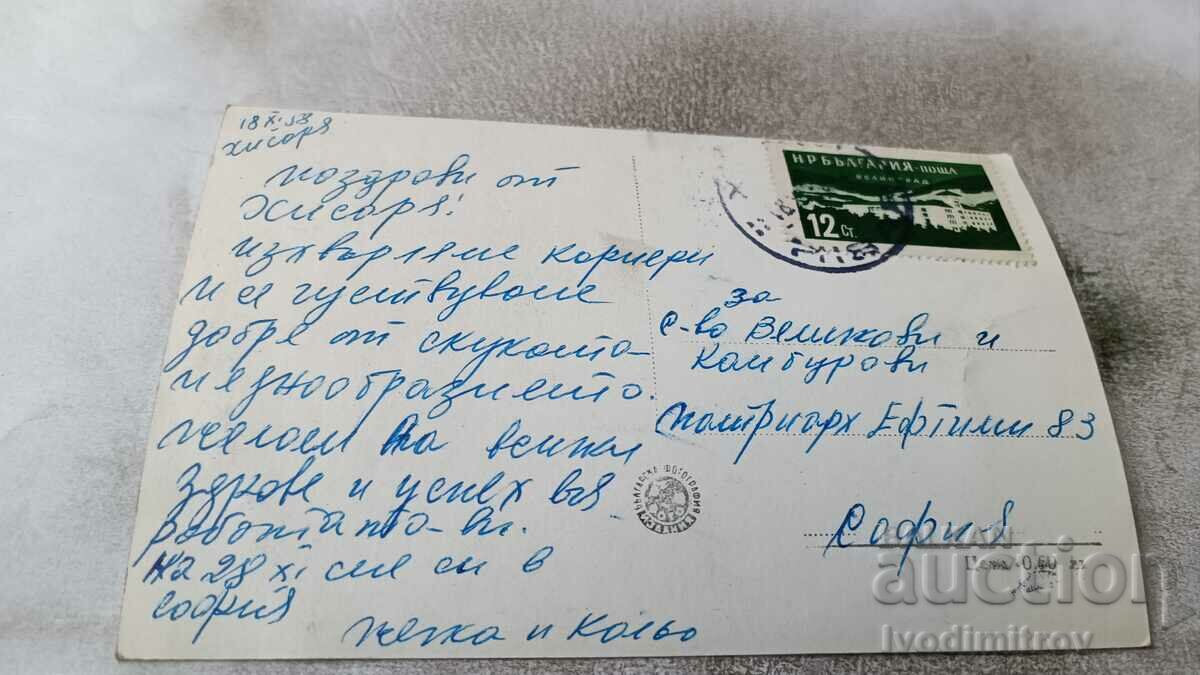 18 XI.58
Хисоря
Поздрови от
Хисоря!
изхвърляме корнери
и се чувствуваме
добре от скуката
и еднообразието.
желаем на всички
здраве и успех във
работата
на 28 XI сме си в
София
и Кольо
НРБЪЛГАРИЯ-ПОЩА
ВЕЛИНГРАД
12 СТ.
за
с-во Величкови и
Камбурови
Патриарх Ефтими 83
София
БЪЛГАРСКА ФОТОГРАФИЯ
Цена 0,60 лв
BALKAN
auction
Ivodimitrov